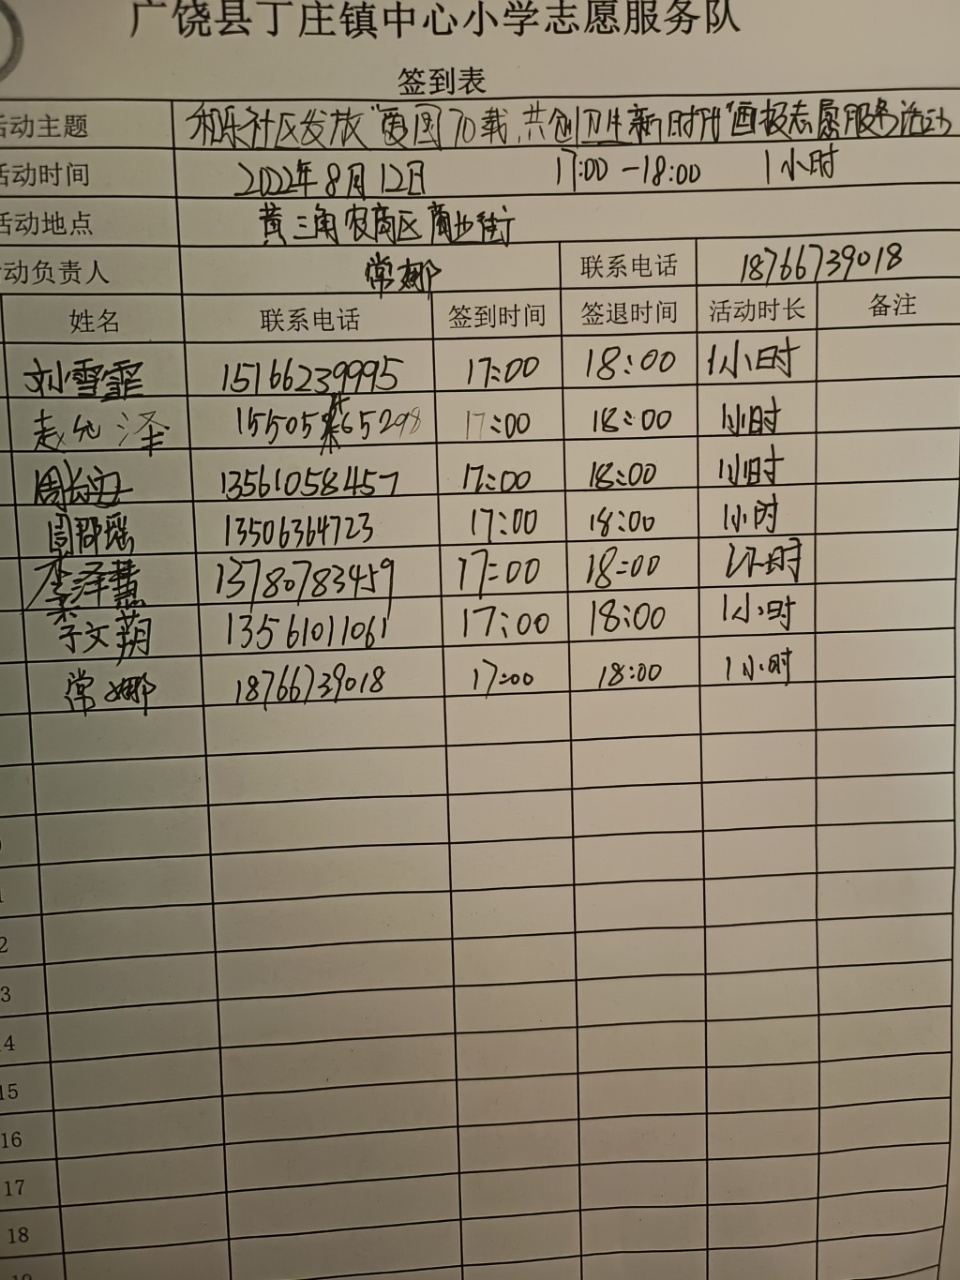 广饶县丁庄镇中心小学志愿服务队
签到表
活动主题 和乐社区发放“爱国70载,共创卫生新时代”画报志愿服务活动
活动时间 2022年8月12日 17:00-18:00 1小时
活动地点 黄三角农商区商业街
活动负责人 常娜 联系电话 18766739018
姓名 联系电话 签到时间 签退时间 活动时长 备注
刘雪霏 15166239995 17:00 18:00 1小时
赵允泽 155055 65298 17:00 18:00 1小时
周长安 13561058457 17:00 18:00 1小时
周郡瑶 13506364723 17:00 18:00 1小时
李泽慧 13780783459 17:00 18:00 1小时
于文蒴 13561011061 17:00 18:00 1小时
常娜 18766739018 17:00 18:00 1小时
2
3
14
15
16
17
18